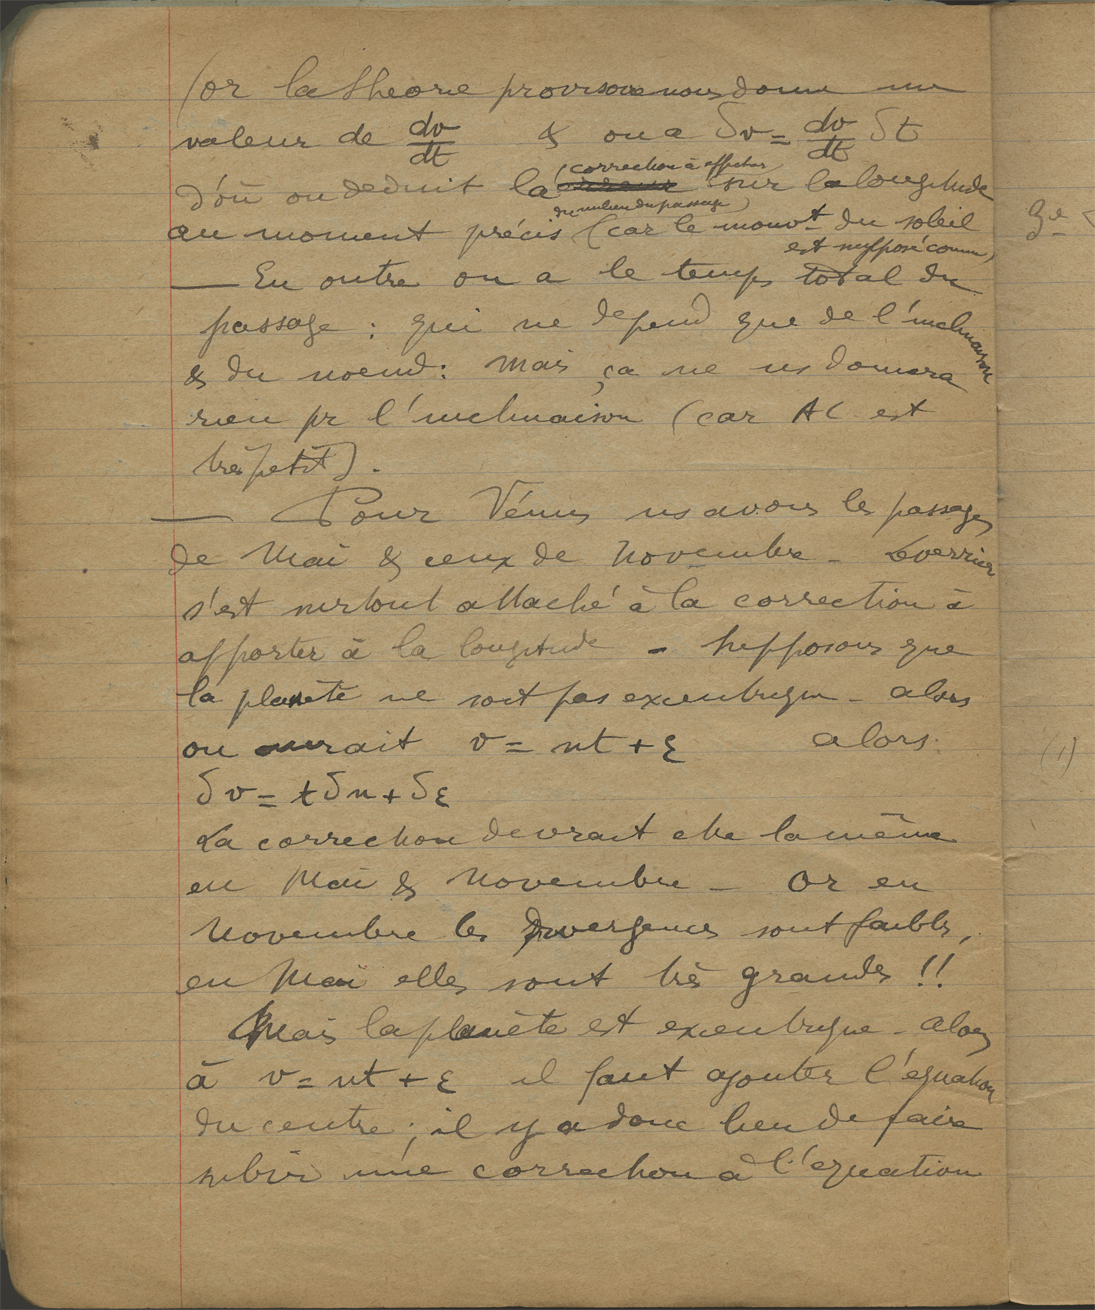 (or la théorie provisoire nous donne une
valeur de dv/dt & on a δv = dv/dt δt
d'où on déduit la (correction à affecter sur la longitude
du milieu du passage)
au moment précis (car le mouvt du soleil
est supposé connu)
— En outre on a le temps total du
passage : qui ne depend que de l'inclinaison
& du noeud : mais ça ne ns donnera
rien pr l'inclinaison (car AC est
très petit).
— Pour Vénus ns avons les passages
de Mai & ceux de Novembre - Leverrier
s'est surtout attaché à la correction à
apporter à la longitude - Supposons que
la planète ne soit pas excentrique - alors
on aurait v = nt + ε alors
δv = tδn + δε
La correction devrait etre la même
en Mai & Novembre - Or en
Novembre les divergences sont faibles,
en Mai elles sont très grandes !!
Mais la planète est excentrique - alors
à v = nt + ε il faut ajouter l'équation
du centre ; il y a donc lieu de faire
subir une correction à l'equation
3e
(1)